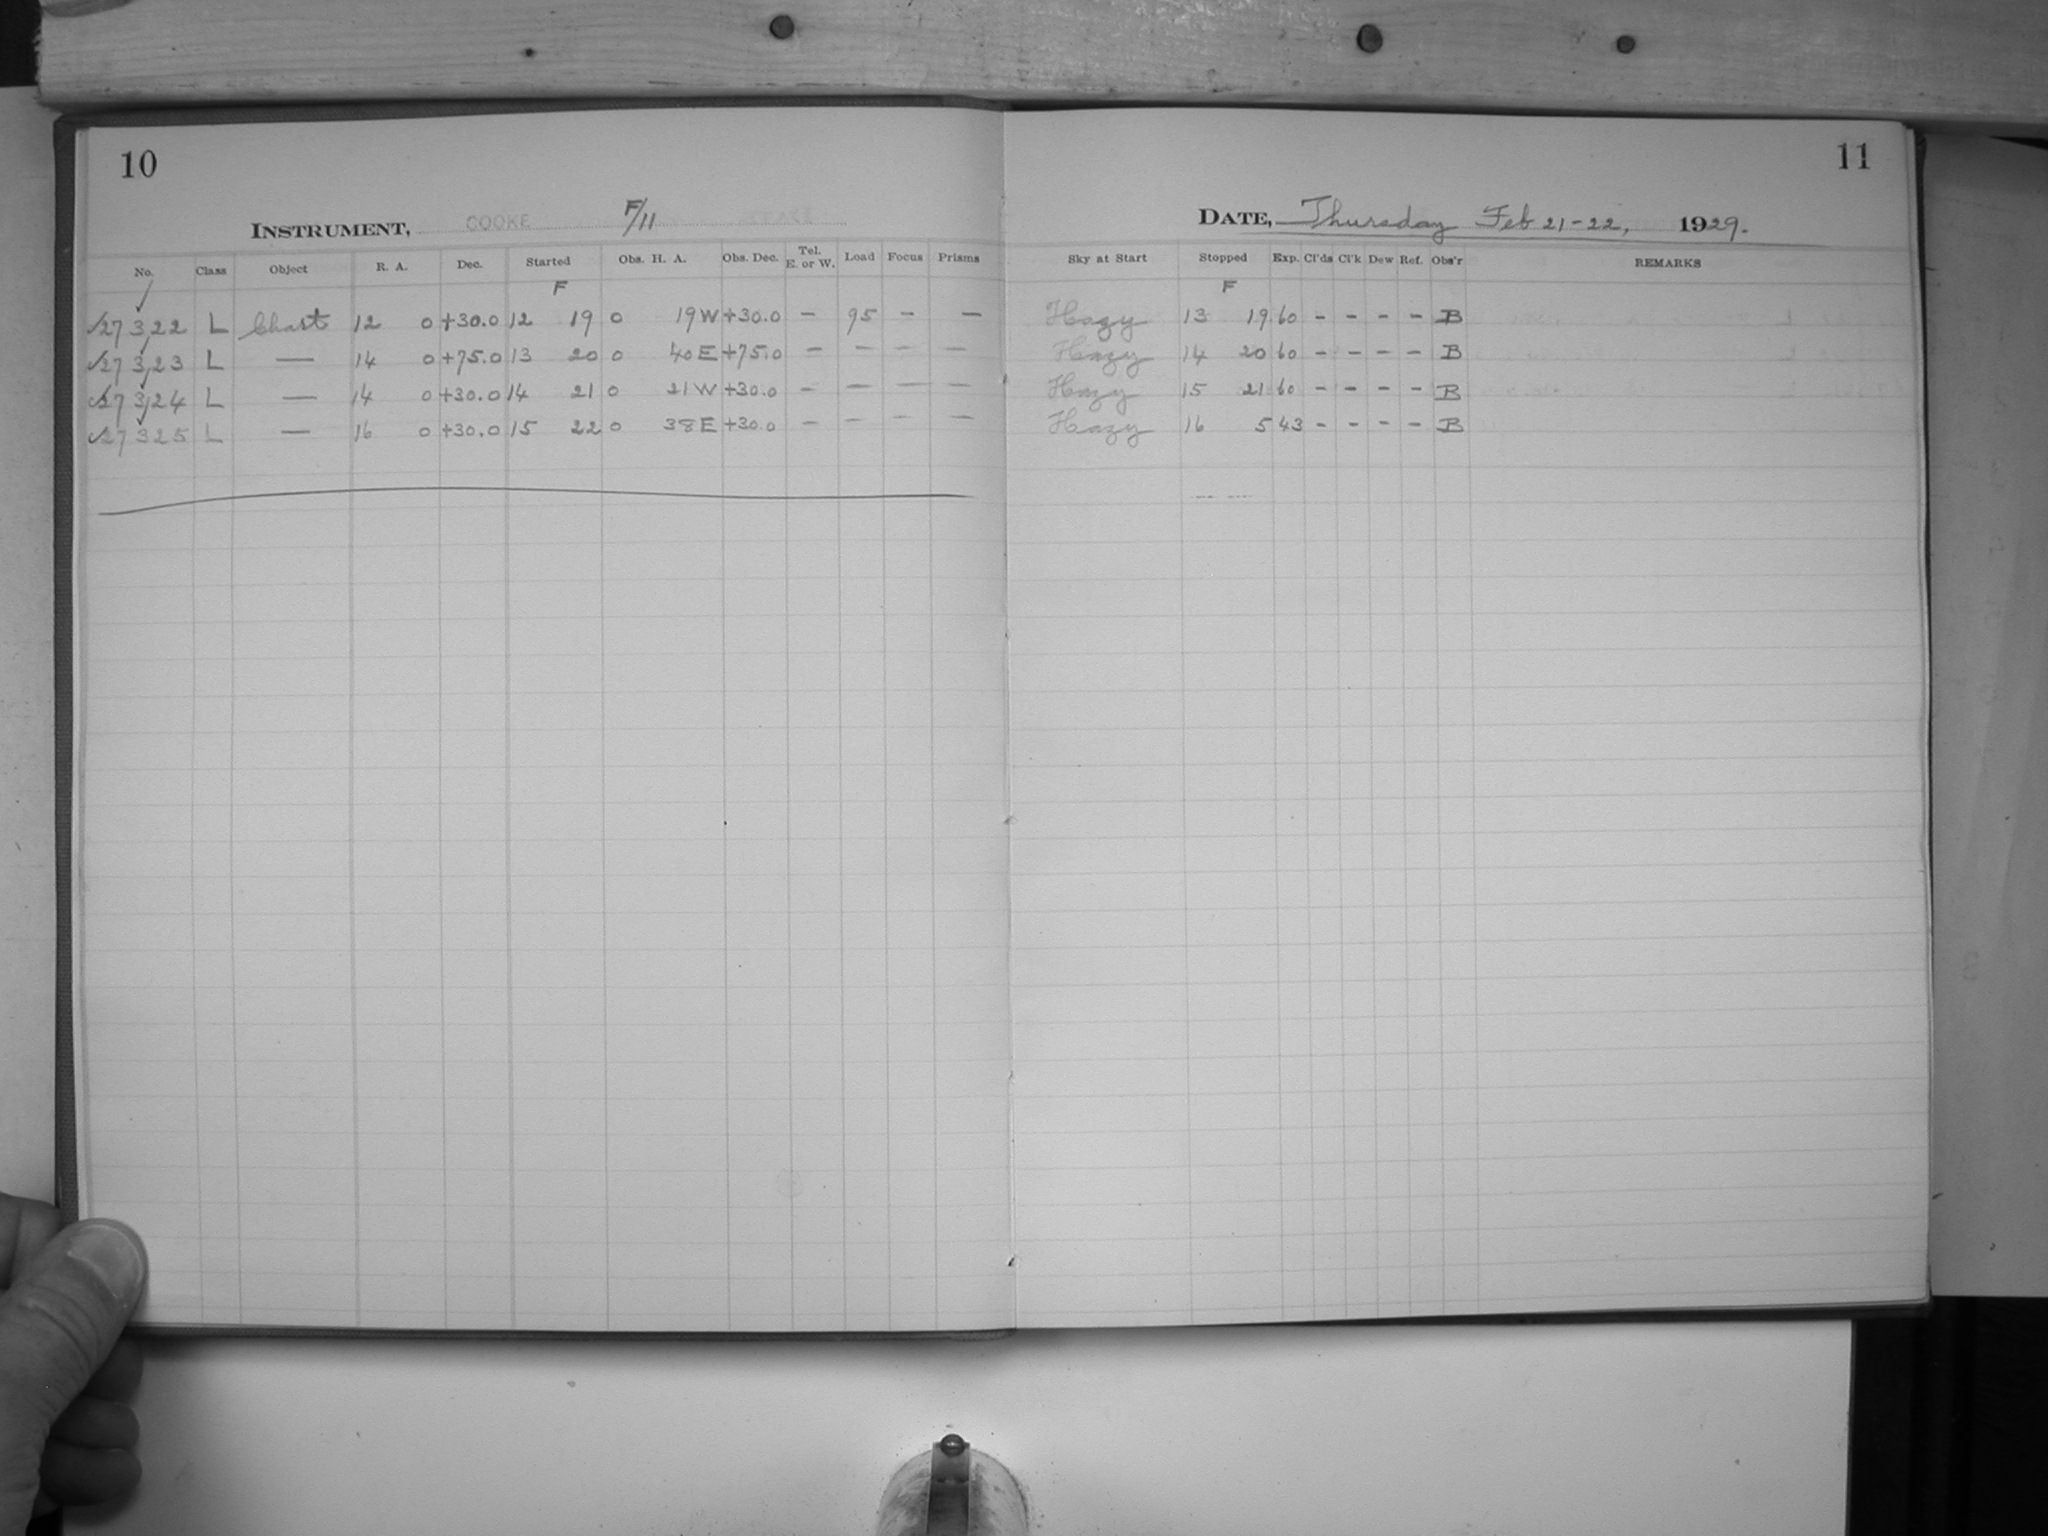 10
INSTRUMENT, COOKE F/11
No. Class Object R. A. Dec. Started Obs. H. A. Obs. Dec. Tel. E. or W. Load Focus Prisms
F
27322 L Chart 12 0 +30.0 12 19 0 19 W +30.0 – 95 – –
27323 L — 14 0 +75.0 13 20 0 40 E +75.0 – — — —
27324 L — 14 0 +30.0 14 21 0 21 W +30.0 – — — —
27325 L — 16 0 +30.0 15 22 0 38 E +30.0 – — — —
11
DATE, Thursday Feb 21-22, 1929.
Sky at Start Stopped Exp. Cl'ds Cl'k Dew Ref. Obs'r REMARKS
F
Hazy 13 19 60 – – – – B
Hazy 14 20 60 – – – – B
Hazy 15 21 60 – – – – B
Hazy 16 5 43 – – – – B